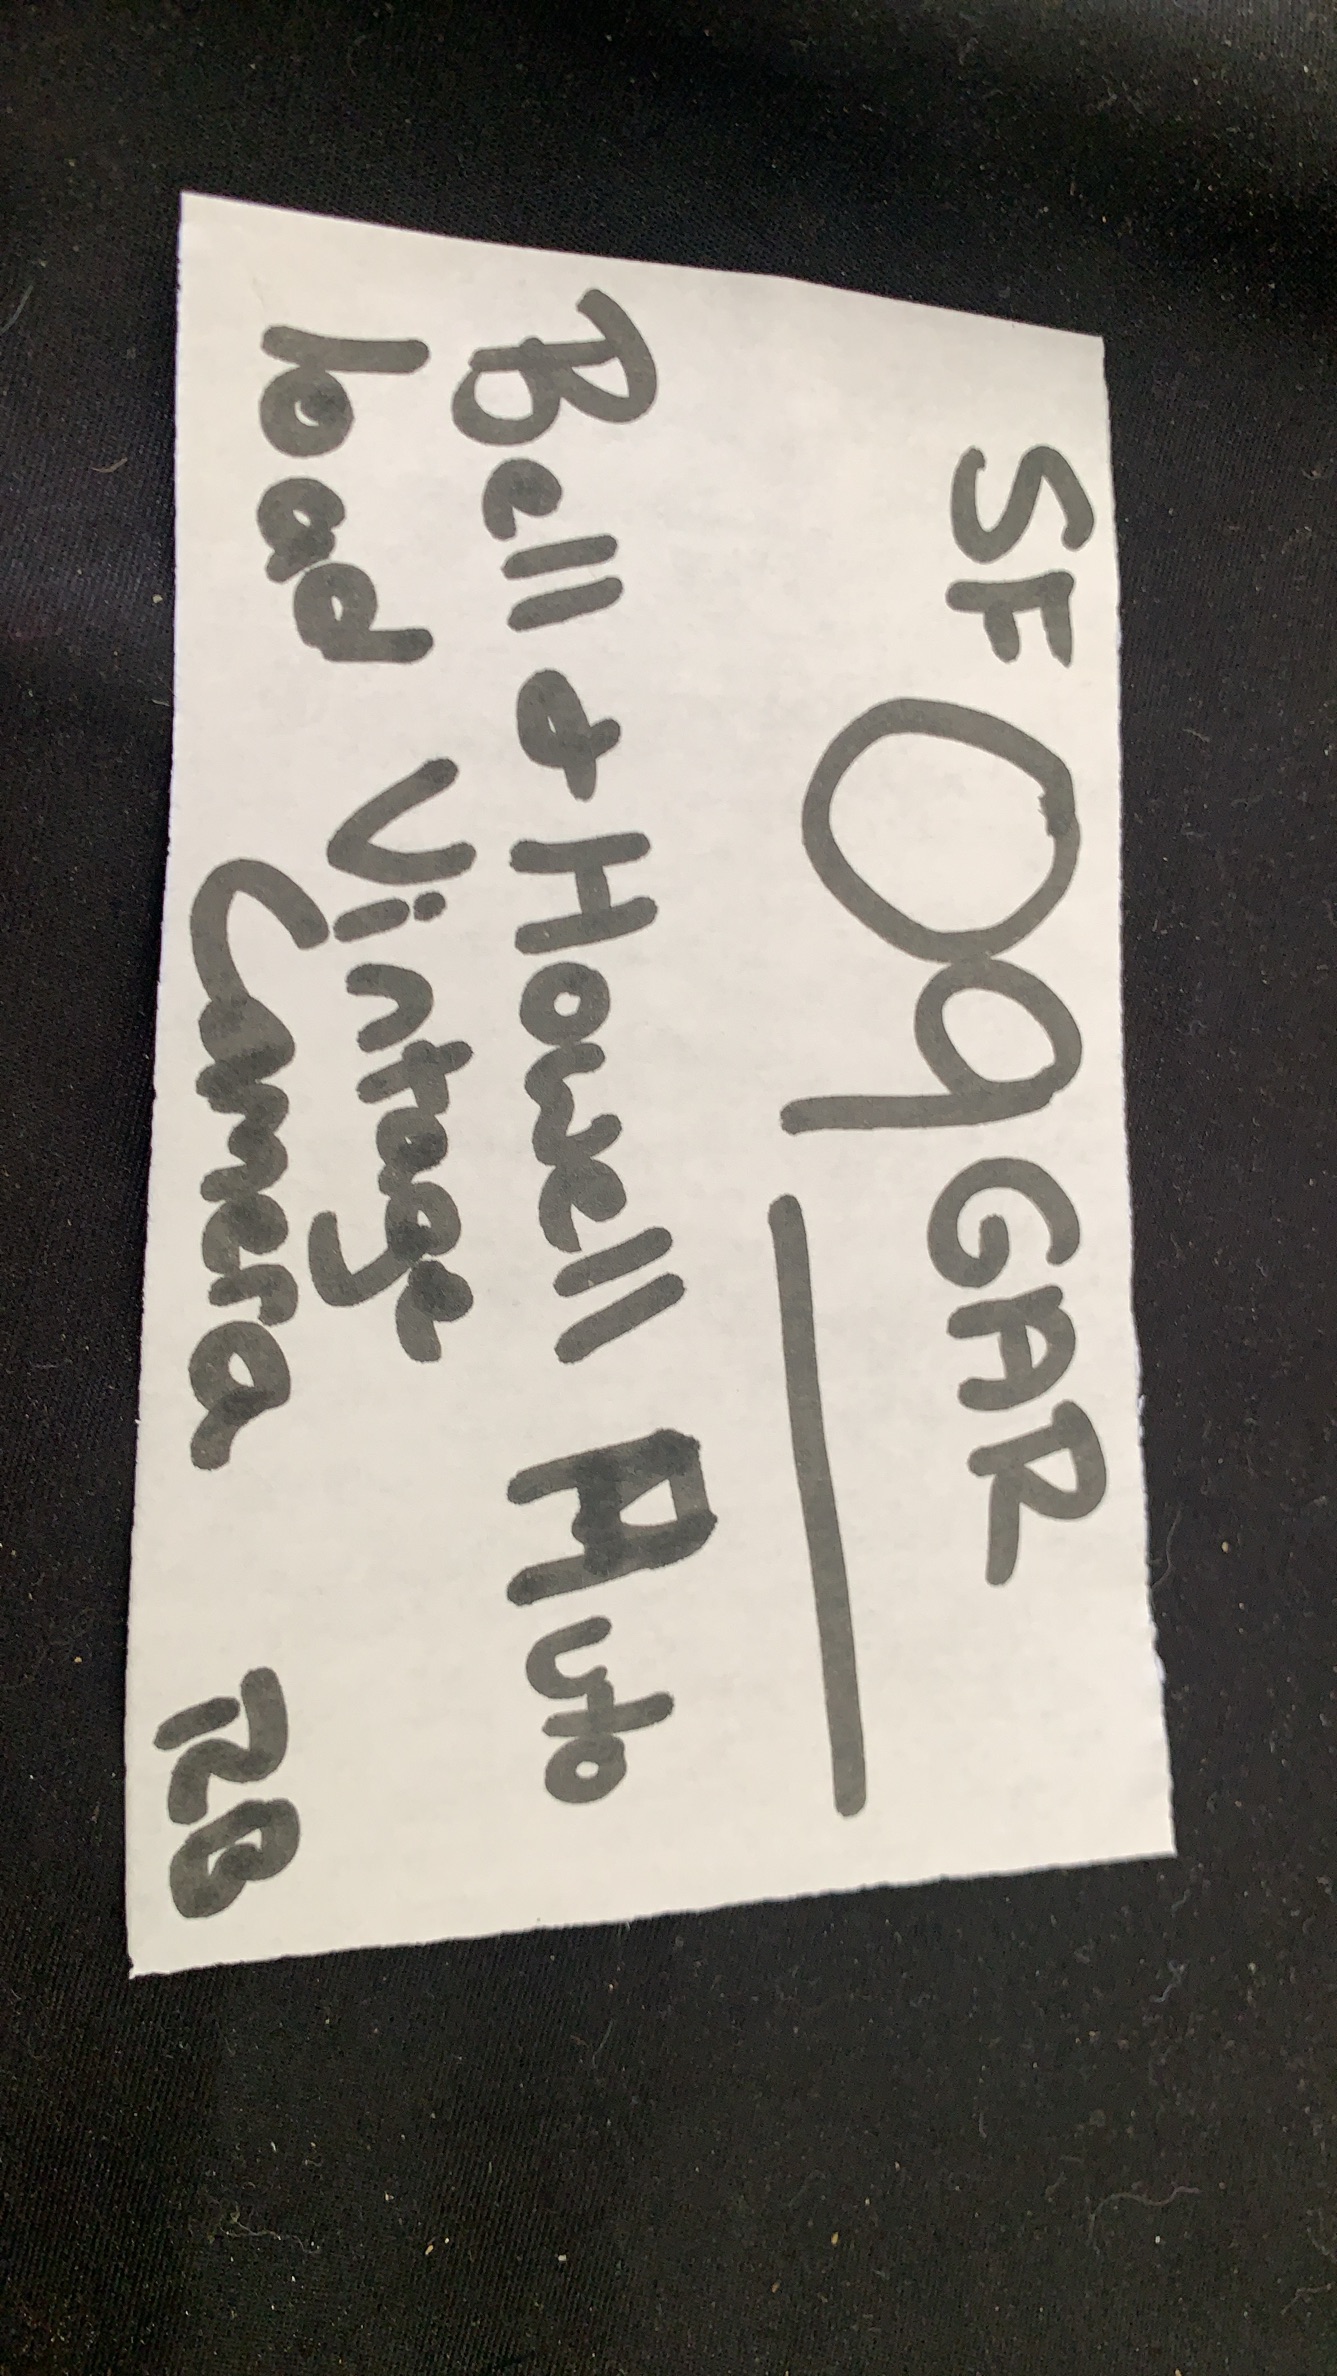 SF 09 GAR
Bell & Howell Auto
load Vintage
Camera